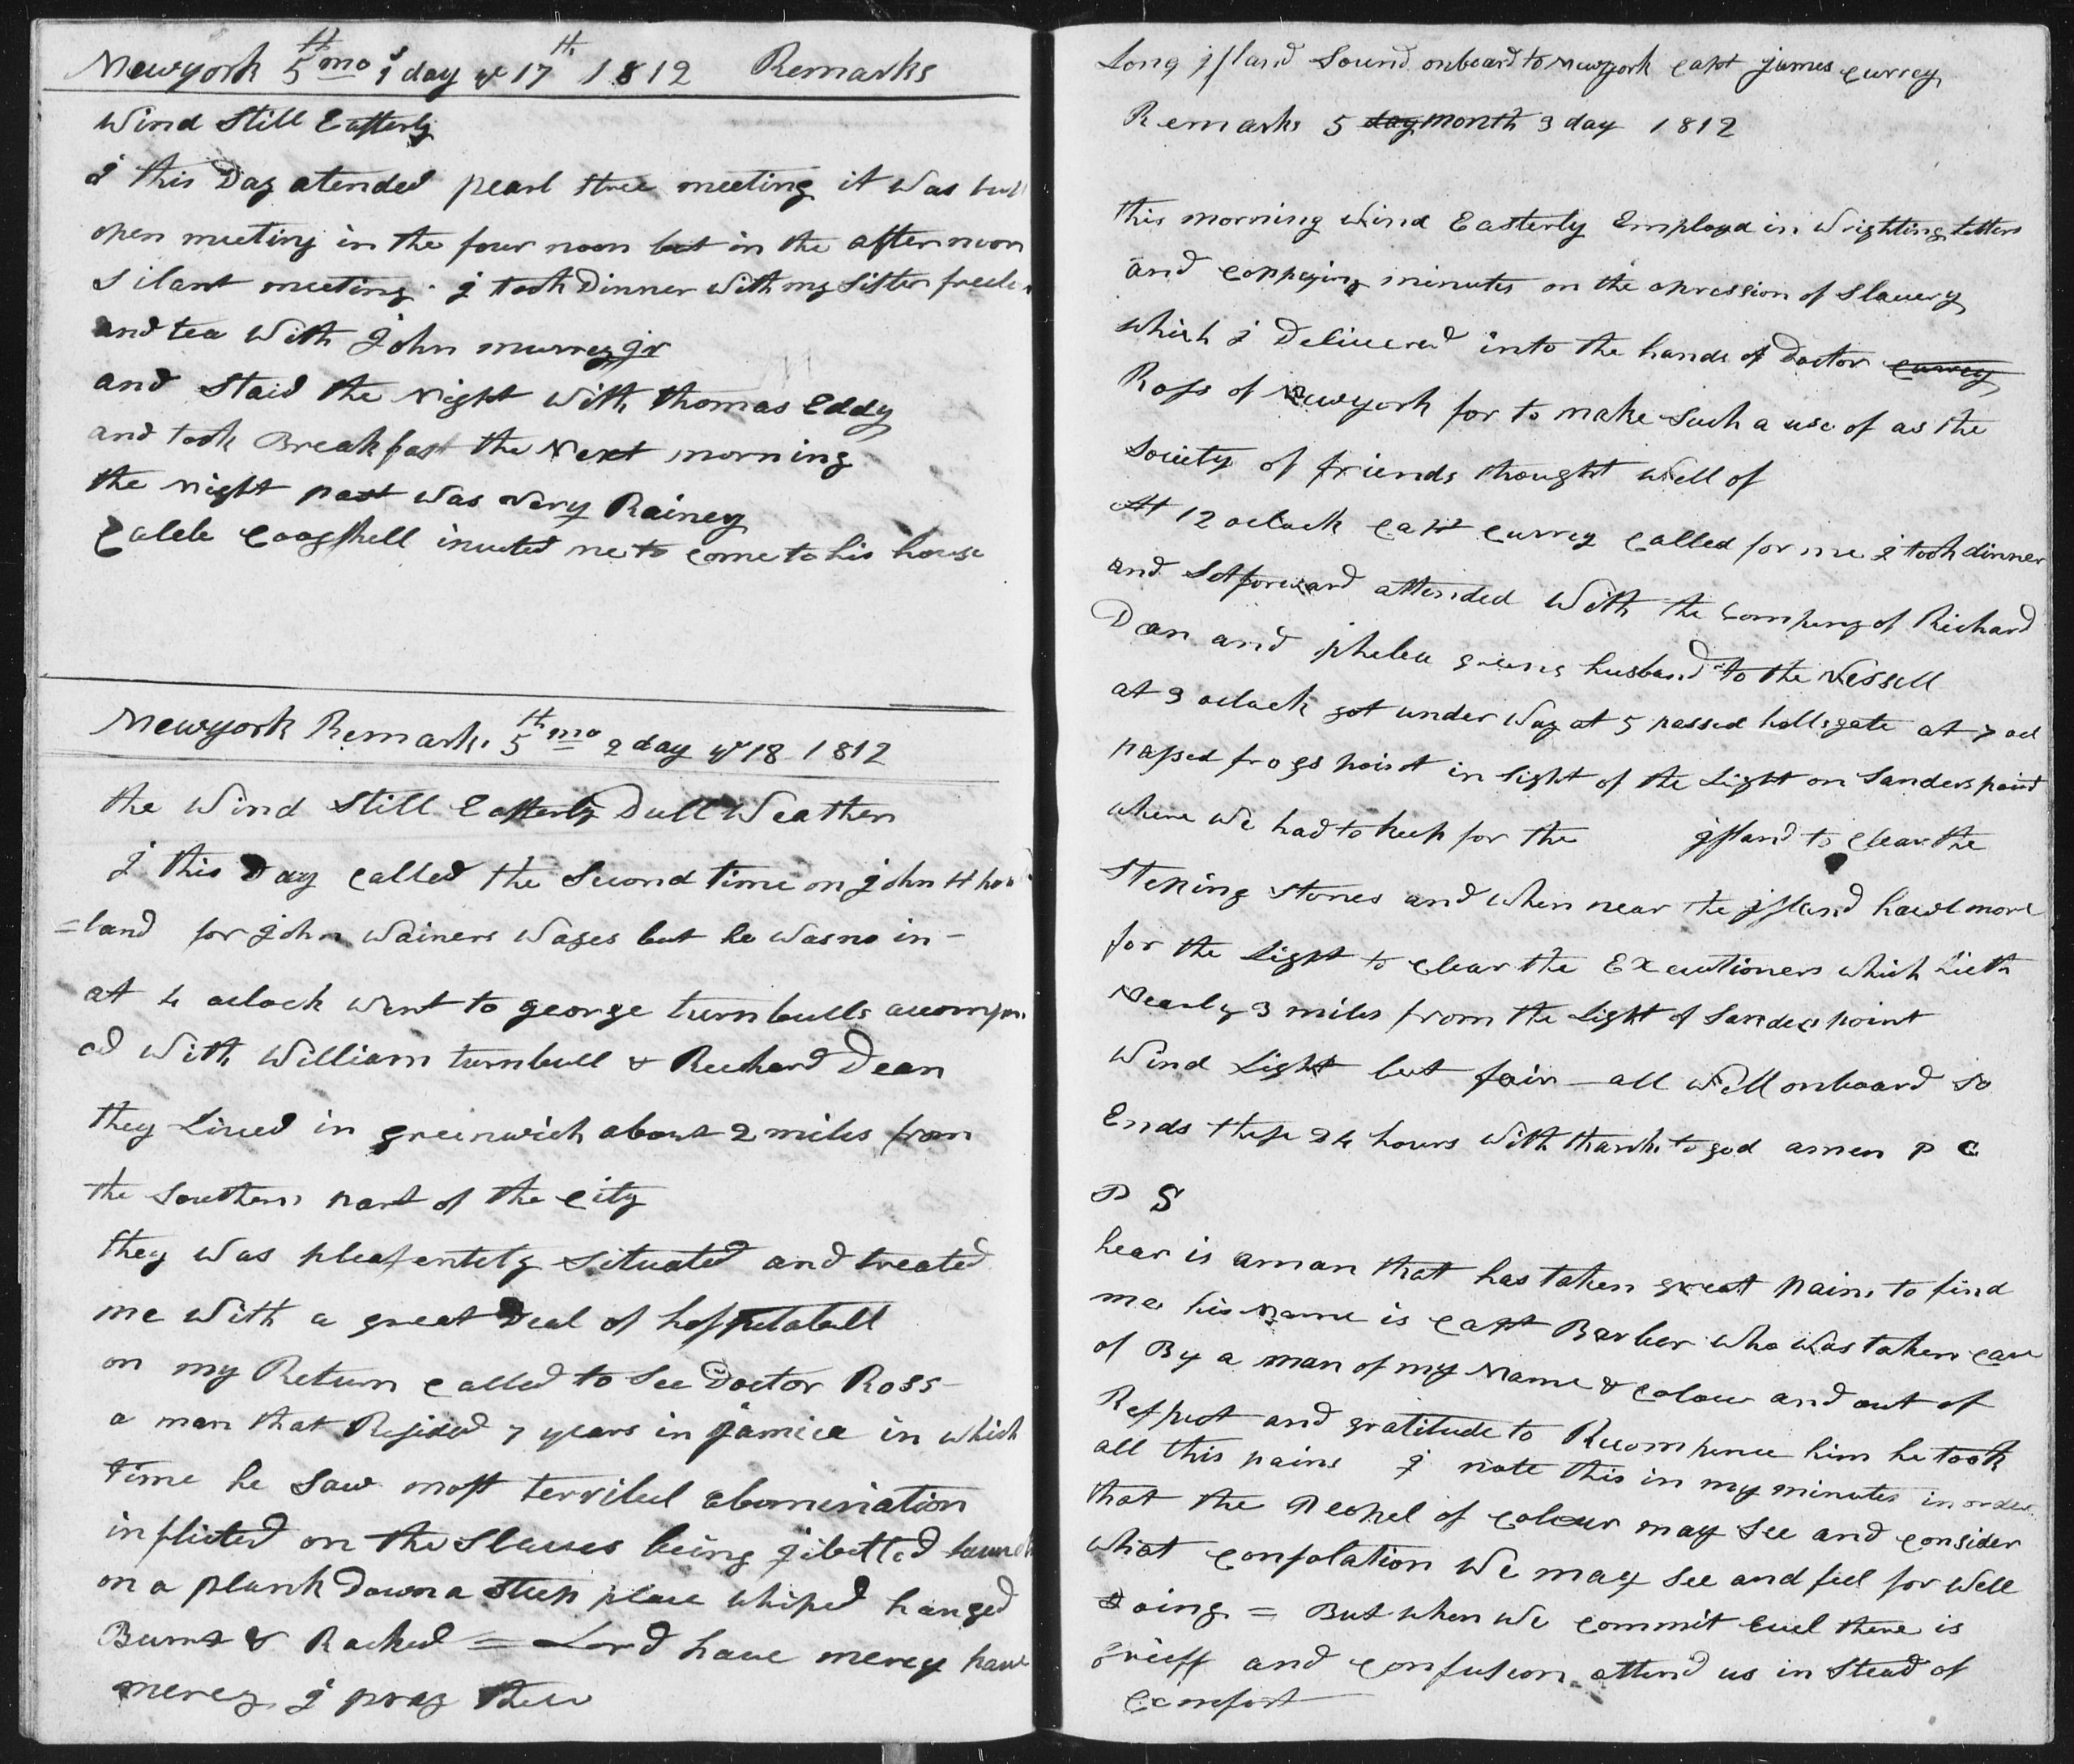 Newyork 5th mo 1 day ye 17th 1812 Remarks
Wind Still Easterly
I this Day atended pearl stree meeting it Was but
open meeting in the four noon but in the afternoon
Silant meeting. I took Dinner With my Sister freelo
and tea With John murrey Jr
and Staid the night With thomas Eddy
and took Breakfast the Next morning
the night past Was Very Rainey
Caleb Coogshell inveted me to come to his house
Newyork Remarks 5th mo 2 day ye 18 1812
the Wind Still Easterly Dull Weather
I this Day called the Second time on John H how
=land for John Wainers Wages but he Was no in -
at 4 oclock Went to george turnbulls accompan
ed With William turnbull & Rechard Dean
they Lived in greenwich about 2 miles from
the Southern part of the City
they Was pleasentely Situated and treated
me With a great Deal of hospitabell
on my Return called to See Doctor Ross -
a man that Resided 7 years in Jamica in which
time he Saw most terribel abomination
inflicted on the Slaves being gibetted
on a plank Down a Steep place Whiped hanged
Burnt & Racked = Lord have mercy have
mercy I pray thee
Long Island Sound onboard to Newyork Capt James Currey
Remarks 5 day month 3 day 1812
this morning Wind Easterly Employd in Wrighting Letters
and coppeying minutes on the opression of Slavery
which I Delivered into the hands of Doctor Currey
Ross of Newyork for to make Such a use of as the
Society of friends thought Well of
At 12 oclock Capt Currey Called for me I took dinner
and Set forward attended With the Compeny of Richard
Dean and phebea greens husband to the Vessell
at 3 oclock got under Way at 5 passed hellsgate at 7 ocl
passed frogs point in Sight of the Light on Sanders point
where We had to keep for the Island to Clear the
Steping Stones and When near the Island hawl more
for the Light to clear the Executioners Which Lieth
Nearly 3 miles from the Light of Sandes point
Wind Light but fair - all Well onboard So
Ends these 24 hours With thanks to god amen P C
P S
hear is a man that has taken great pains to find
me his Name is Capt Barber Who Was taken care
of By a man of my Name & Colour and out of
Respect and gratitude to Recompence him he took
all this pains I note this in my minutes in order
that the peopel of Colour may See and consider
What Consolation We may See and feel for Well
Doing = But when We commit Evel there is
grieff and Confusion attend us in Stead of
Comfort